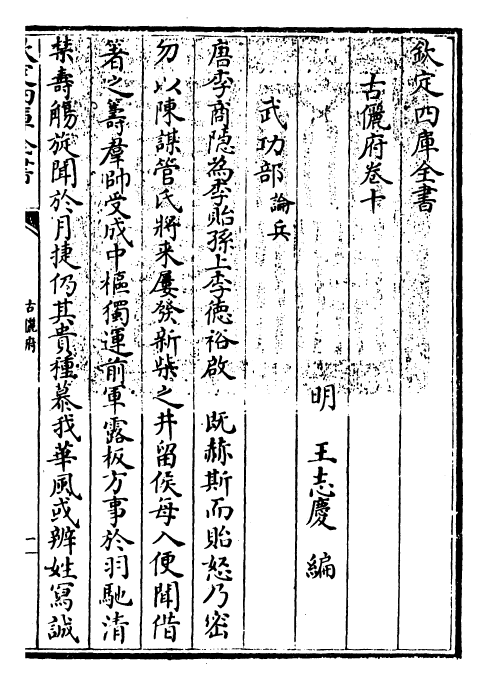 欽定四庫全書
古儷府卷十
明 王志慶 編
武功部 論兵
唐李商隱為李貽孫上李德裕啟 既赫斯而貽怒乃密
勿以陳謀管氏將来屢發新柴之井留侯每入便聞借
箸之籌羣帥受成中樞獨運前軍露板方事於羽馳清
禁壽觴旋聞於月捷仍其貴種慕我華風或辨姓寫誠
古儷府